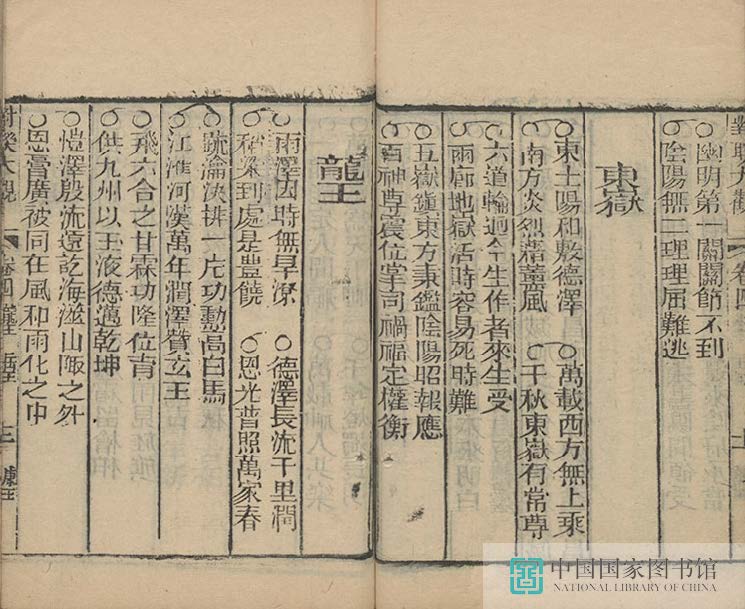 幽明第一關關節不到
陰陽無二理理屈難逃
東嶽
東土陽和敷德澤 萬載西方無上乘
南方炎烈藉薰風 千秋東嶽有常尊
六道輪迴今生作者來生受
兩廊地獄活時容易死時難
五嶽鎮東方秉鑑陰陽昭報應
百神尊震位掌司禍福定權衡
龍王
雨澤因時無旱潦 德澤長流千里潤
稻粱到處是豐饒 恩光普照萬家春
疏瀹決排一片功勳高白馬
江淮河漢萬年潤澤贊玄王
飛六合之甘霖功隆位育
供九州以玉液德邁乾坤
愷澤殷流遠訖海澨山陬之外
恩膏廣被同在風和雨化之中
卷四
中国国家图书馆
NATIONAL LIBRARY OF CHINA